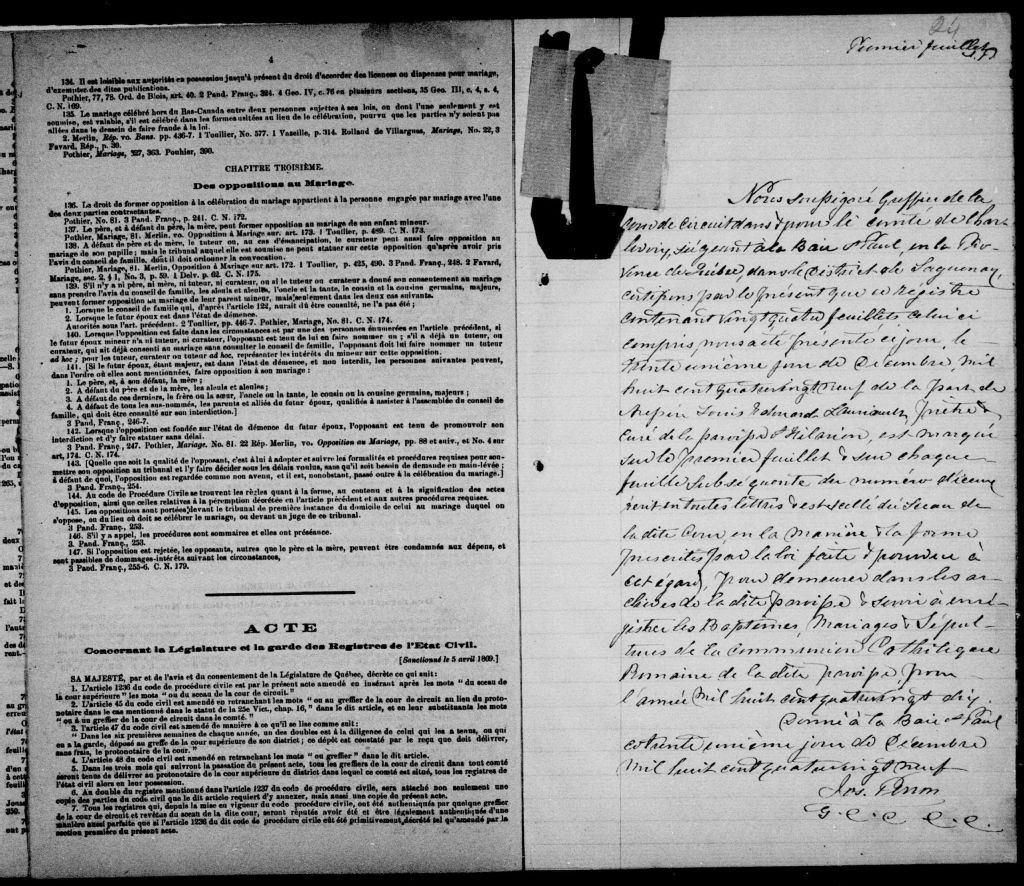 4
134. Il est loisible aux autorités en possession jusqu'à présent du droit d'accorder des licences ou dispenses pour mariage,
d'exempter des dites publications.
Pothier, 77, 78. Ord. de Blois, art. 40. 2 Pand. Franç., 324. 4 Geo. IV, c. 76 en plusieurs sections, 35 Geo. III, c. 4, s. 4,
C. N. 169.
135. Le mariage célébré hors du Bas-Canada entre deux personnes sujettes à ses lois, ou dont l'une seulement y est
soumise, est valable, s'il est célébré dans les formes usitées au lieu de la célébration, pourvu que les parties n'y soient pas
allées dans le dessein de faire fraude à la loi.
2. Merlin, Rép. vo. Bans. pp. 436-7. 1 Toullier, No. 577. 1 Vazeille, p. 314. Rolland de Villargues, Mariage, No. 22, 3
Favard, Rép., p. 30.
Pothier, Mariage, 327, 363. Pouhier, 390.
CHAPITRE TROISIÈME.
Des oppositions au Mariage.
136. Le droit de former opposition à la célébration du mariage appartient à la personne engagée par mariage avec l'une
des deux parties contractantes.
Pothier, No. 81. 3 Pand. Franç., p. 241. C. N. 172.
137. Le père, et à défaut du père, la mère, peut former opposition au mariage de son enfant mineur.
Pothier, Mariage, 81. Merlin, vo. Opposition à Mariage sur art. 173. 1 Toullier, p. 489. C. N. 173.
138. A défaut de père et de mère, le tuteur ou, au cas d'émancipation, le curateur peut aussi faire opposition au
mariage de son pupille; mais le tribunal auquel elle est soumise ne peut statuer sur cette opposition qu'après avoir pris
l'avis du conseil de famille, dont il doit ordonner la convocation.
Pothier, Mariage, 81. Merlin, Opposition à Mariage sur art. 172. 1 Toullier, p. 425, 490. 3 Pand. Franç., 248. 2 Favard,
Mariage, sec. 2, § 1, No. 3, p. 59. 1 Delv. p. 62. C. N. 175.
139. S'il n'y a ni père, ni mère, ni tuteur, ni curateur, ou si le tuteur ou curateur a donné son consentement au mariage
sans prendre l'avis du conseil de famille, les aïeuls et aïeules, l'oncle et la tante, le cousin et la cousine germains, majeurs,
peuvent former opposition au mariage de leur parent mineur, mais seulement dans les deux cas suivants.
1. Lorsque le conseil de famille qui, d'après l'article 122, aurait dû être consulté, ne l'a pas été;
2. Lorsque le futur époux est dans l'état de démence.
Autorités sous l'art. précédent. 2 Toullier, pp. 446-7. Pothier, Mariage, No. 81. C. N. 174.
140. Lorsque l'opposition est faite dans les circonstances et par une des personnes énumérées en l'article précédent, si
le futur époux mineur n'a ni tuteur, ni curateur, l'opposant est tenu de lui en faire nommer un; s'il a déjà un tuteur, ou
curateur, qui ait déjà consenti au mariage sans consulter le conseil de famille, l'opposant doit lui faire nommer un tuteur
ad hoc; pour les tuteur, curateur ou tuteur ad hoc, représenter les intérêts du mineur sur cette opposition.
141. [Si le futur époux, étant majeur, est dans l'état de démence, et non interdit, les personnes suivantes peuvent,
dans l'ordre où elles sont mentionnées, faire opposition à son mariage:
1. Le père, et, à son défaut, la mère;
2. A défaut du père et de la mère, les aïeuls et aïeules;
3. A défaut de ces derniers, le frère ou la sœur, l'oncle ou la tante, le cousin ou la cousine germains, majeurs;
4. A défaut de tous les sus-nommés, les parents et alliés du futur époux, qualifiés à assister à l'assemblée du conseil de
famille, qui doit être consulté sur son interdiction.]
3 Pand. Franç., 246-7.
142. Lorsque l'opposition est fondée sur l'état de démence du futur époux, l'opposant est tenu de promouvoir son
interdiction et d'y faire statuer sans délai.
3 Pand. Franç., 247. Pothier, Mariage, No. 81. 22 Rép. Merlin, vo. Opposition au Mariage, pp. 88 et suiv., et No. 4 sur
art, 174. C. N. 174.
143. [Quelle que soit la qualité de l'opposant, c'est à lui à adopter et suivre les formalités et procédures requises pour sou-
mettre son opposition au tribunal et l'y faire décider sous les délais voulus, sans qu'il soit besoin de demande en main-levée;
à défaut de quoi, l'opposition est regardée comme non avenue, et il est, nonobstant, passé outre à la célébration du mariage.]
3 Pand. Franç., 254.
144. Au code de Procédure Civile se trouvent les règles quant à la forme, au contenu et à la signification des actes
d'opposition, ainsi que celles relatives à la péremption décrétée en l'article précédent et aux autres procédures requises.
145. Les oppositions sont portées devant le tribunal de première instance du domicile de celui au mariage duquel on
s'oppose, ou du lieu où doit se célébrer le mariage, ou devant un juge de ce tribunal.
3 Pand. Franç., 253.
146. S'il y a appel, les procédures sont sommaires et elles ont préséance.
3. Pand. Franç., 253.
147. Si l'opposition est rejetée, les opposants, autres que le père et la mère, peuvent être condamnés aux dépens, et
sont passibles de dommages-intérêts suivant les circonstances.
3 Pand. Franç., 255-6. C. N. 179.
ACTE
Concernant la Législature et la garde des Registres de l'Etat Civil.
[Sanctionné le 5 avril 1869.]
SA MAJESTÉ, par et de l'avis et du consentement de la Législature de Québec, décrète ce qui suit:
1. L'article 1236 du code de procédure civile est par le présent acte amendé en insérant après les mots "du sceau de
la cour supérieure" les mots "ou du sceau de la cour de circuit."
2. L'article 45 du code civil est amendé en retranchant les mots "ou au greffier de la cour de circuit au lieu du proto-
notaire dans le cas mentionné dans le statut de la 25e Vict. chap. 16," dans le dit article, et en leur substituant les mots
"ou à un greffier de la cour de circuit dans le comté."
3. L'article 47 du code civil est amendé de manière à ce qu'il se lise comme suit:
"Dans les six premières semaines de chaque année, un des doubles est à la diligence de celui qui les a tenus, ou qui
en a la garde, déposé au greffe de la cour supérieure de son district; ce dépôt est constaté par le reçu que doit délivrer,
sans frais, le protonotaire de la cour."
4. L'article 48 du code civil est amendé en retranchant les mots "ou greffier" dans le dit article.
5. Dans les trois mois qui suivront la passation du présent acte, tous les greffiers de la cour de circuit dans tout comté
seront tenus de délivrer au protonotaire de la cour supérieure du district dans lequel ce comté est situé, tous les registres de
l'état civil alors en leur possession.
6. Au double du registre mentionné dans l'article 1237 du code de procédure civile, sera attaché non seulement une
copie des parties du code civil que le dit article requiert d'y annexer, mais aussi une copie du présent acte.
7. Tous les registres qui, depuis la mise en vigueur du code procédure civile, ont été authentiqués par quelque greffier
de la cour de circuit et revêtus du sceau de la dite cour, seront réputés avoir été et être légalement authentiqués d'une
manière aussi parfaite que si l'article 1236 du dit code de procédure civile eût été primitivement décrété tel qu'amendé par la
section première du présent acte.
24
Premier feuillet
Nous soussigné Greffier de la
cour de circuit dans & pour le comté de Char
levoix, siégeant à la Baie St Paul, en la Pro-
vince de Québec dans le District de Saguenay,
certifions par le présent que ce registre
contenant vingt quatre feuillets celui ci
compris, nous a été présenté ce jour, le
trente unième jour de Décembre, mil
huit cent quatrevingt neuf de la part de
Messire Louis Edouard Lauriault, prêtre &
curé de la paroisse St Hilarion, est marqué
sur le premier feuillet & sur chaque
feuille subséquente du numéro d'icelui
écrit en toutes lettres & est scellé du sceau de
la dite Cour, en la manière & la forme
prescrites par la loi faite & pourvue à
cet égard, pour demeurer dans les ar-
chives de la dite paroisse & servir à enré-
gistrer les Baptêmes, Mariages & Sépul-
tures de la communion Catholique
Romaine de la dite paroisse, pour
l'année mil huit cent quatrevingt dix
Donné à la Baie St Paul
ce trente unième jour de Décembre
Mil huit cent quatrevingt neuf
Jos. Perron
G. C. C. C. C.